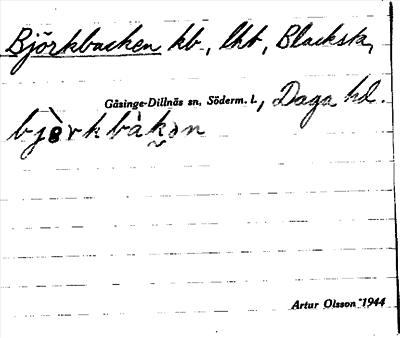 Björkbacken kb., lht, Blacksta,
Gåsinge-Dillnäs sn, Söderm. l., Daga hd.
bjὲrkbàkən
Artur Olsson 1944